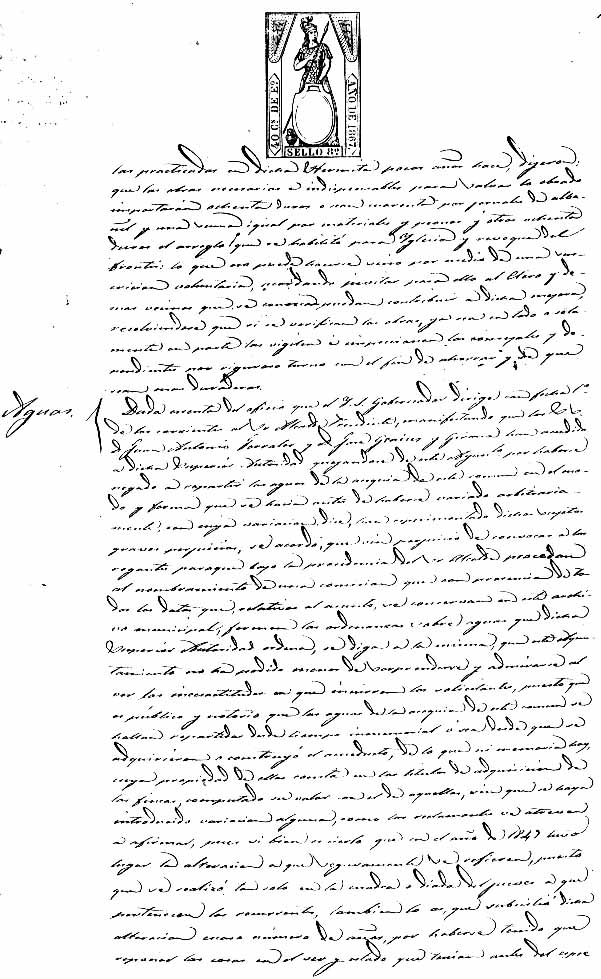 40 Cs. DE Eo.
AÑO DE 1867
SELLO 8o.
las practicadas en dicha Hermita pocos años hace, dijeron:
que las obras necesarias é indispensables para
importarán ochenta duros o sea cuarenta por jornales de alba-
ñil y una suma igual por materiales y peones y otros ochenta
duros el arreglo que se habilitó para Yglesia y revoque del
frontis: lo que no puede hacerse sino por medio de una sus-
cricion voluntaria, acordando invitar para ello al Clero y de-
mas vecinos que se conozca puedan contribuir a dicha mejora,
resolviendose que si se verifican las obras, ya sea en todo o sola-
mente en parte las vigilen é inspeccionen los concejales y de-
pendientes por riguroso turno con el fin de alcanzar y de que
sean mas duraderas.
Aguas.
Dada cuenta del oficio que el Y. S. Gobernador dirige con fecha 1o.
de los corriente al Sr Alcalde Presidente, manifestando que los Srs
D. Juan Antonio y D. José y han acudido
a dicha Superior Autoridad quejandose de este Ayunto. por haberse
negado a repartir las aguas de la acequia de este comun en el mo-
do y forma que se hacia antes de haberse variado arbitraria-
mente, con cuya variacion dice, han esperimentado dichos sugetos
graves perjuicios, se acordó, que sin perjuicio de convocar a los
regantes para que bajo la presidencia del Sr Alcalde procedan
al nombramiento de una comision que con presencia de to-
dos los datos que, relativos al asunto, se conservan en este archi-
vo municipal, formen las ordenanzas sobre aguas que dicha
Superior Autoridad ordena, se diga a la misma, que este Ayun-
tamiento no ha podido menos de sorprenderse y admirarse al
ver las inecsactitudes en que incurren los solicitantes, puesto que
es público y notorio que las aguas de la acequia de este comun se
hallan repartidas desde tiempo inmemorial ó sea desde que se
adquirieron o construyó el acueducto, de lo que ni memoria hay,
cuya propiedad de ellas consta en los titulos de adquisicion de
las fincas, computado su valor en el de aquellas, sin que se haya
introducido variacion alguna, como los reclamantes se atreven
a afirmar, pues si bien es cierto que en el año de 1847 tuvo
lugar la alteracion a que seguramente se refieren, puesto
que se realizó tan solo en la cuadra o diada del jueves a que
pertenecen los recurrentes, tambien lo es, que subsistió dicha
alteracion escaso número de años, por haberse tenido que
reponer las cosas en el ser y estado que tenian antes del espre